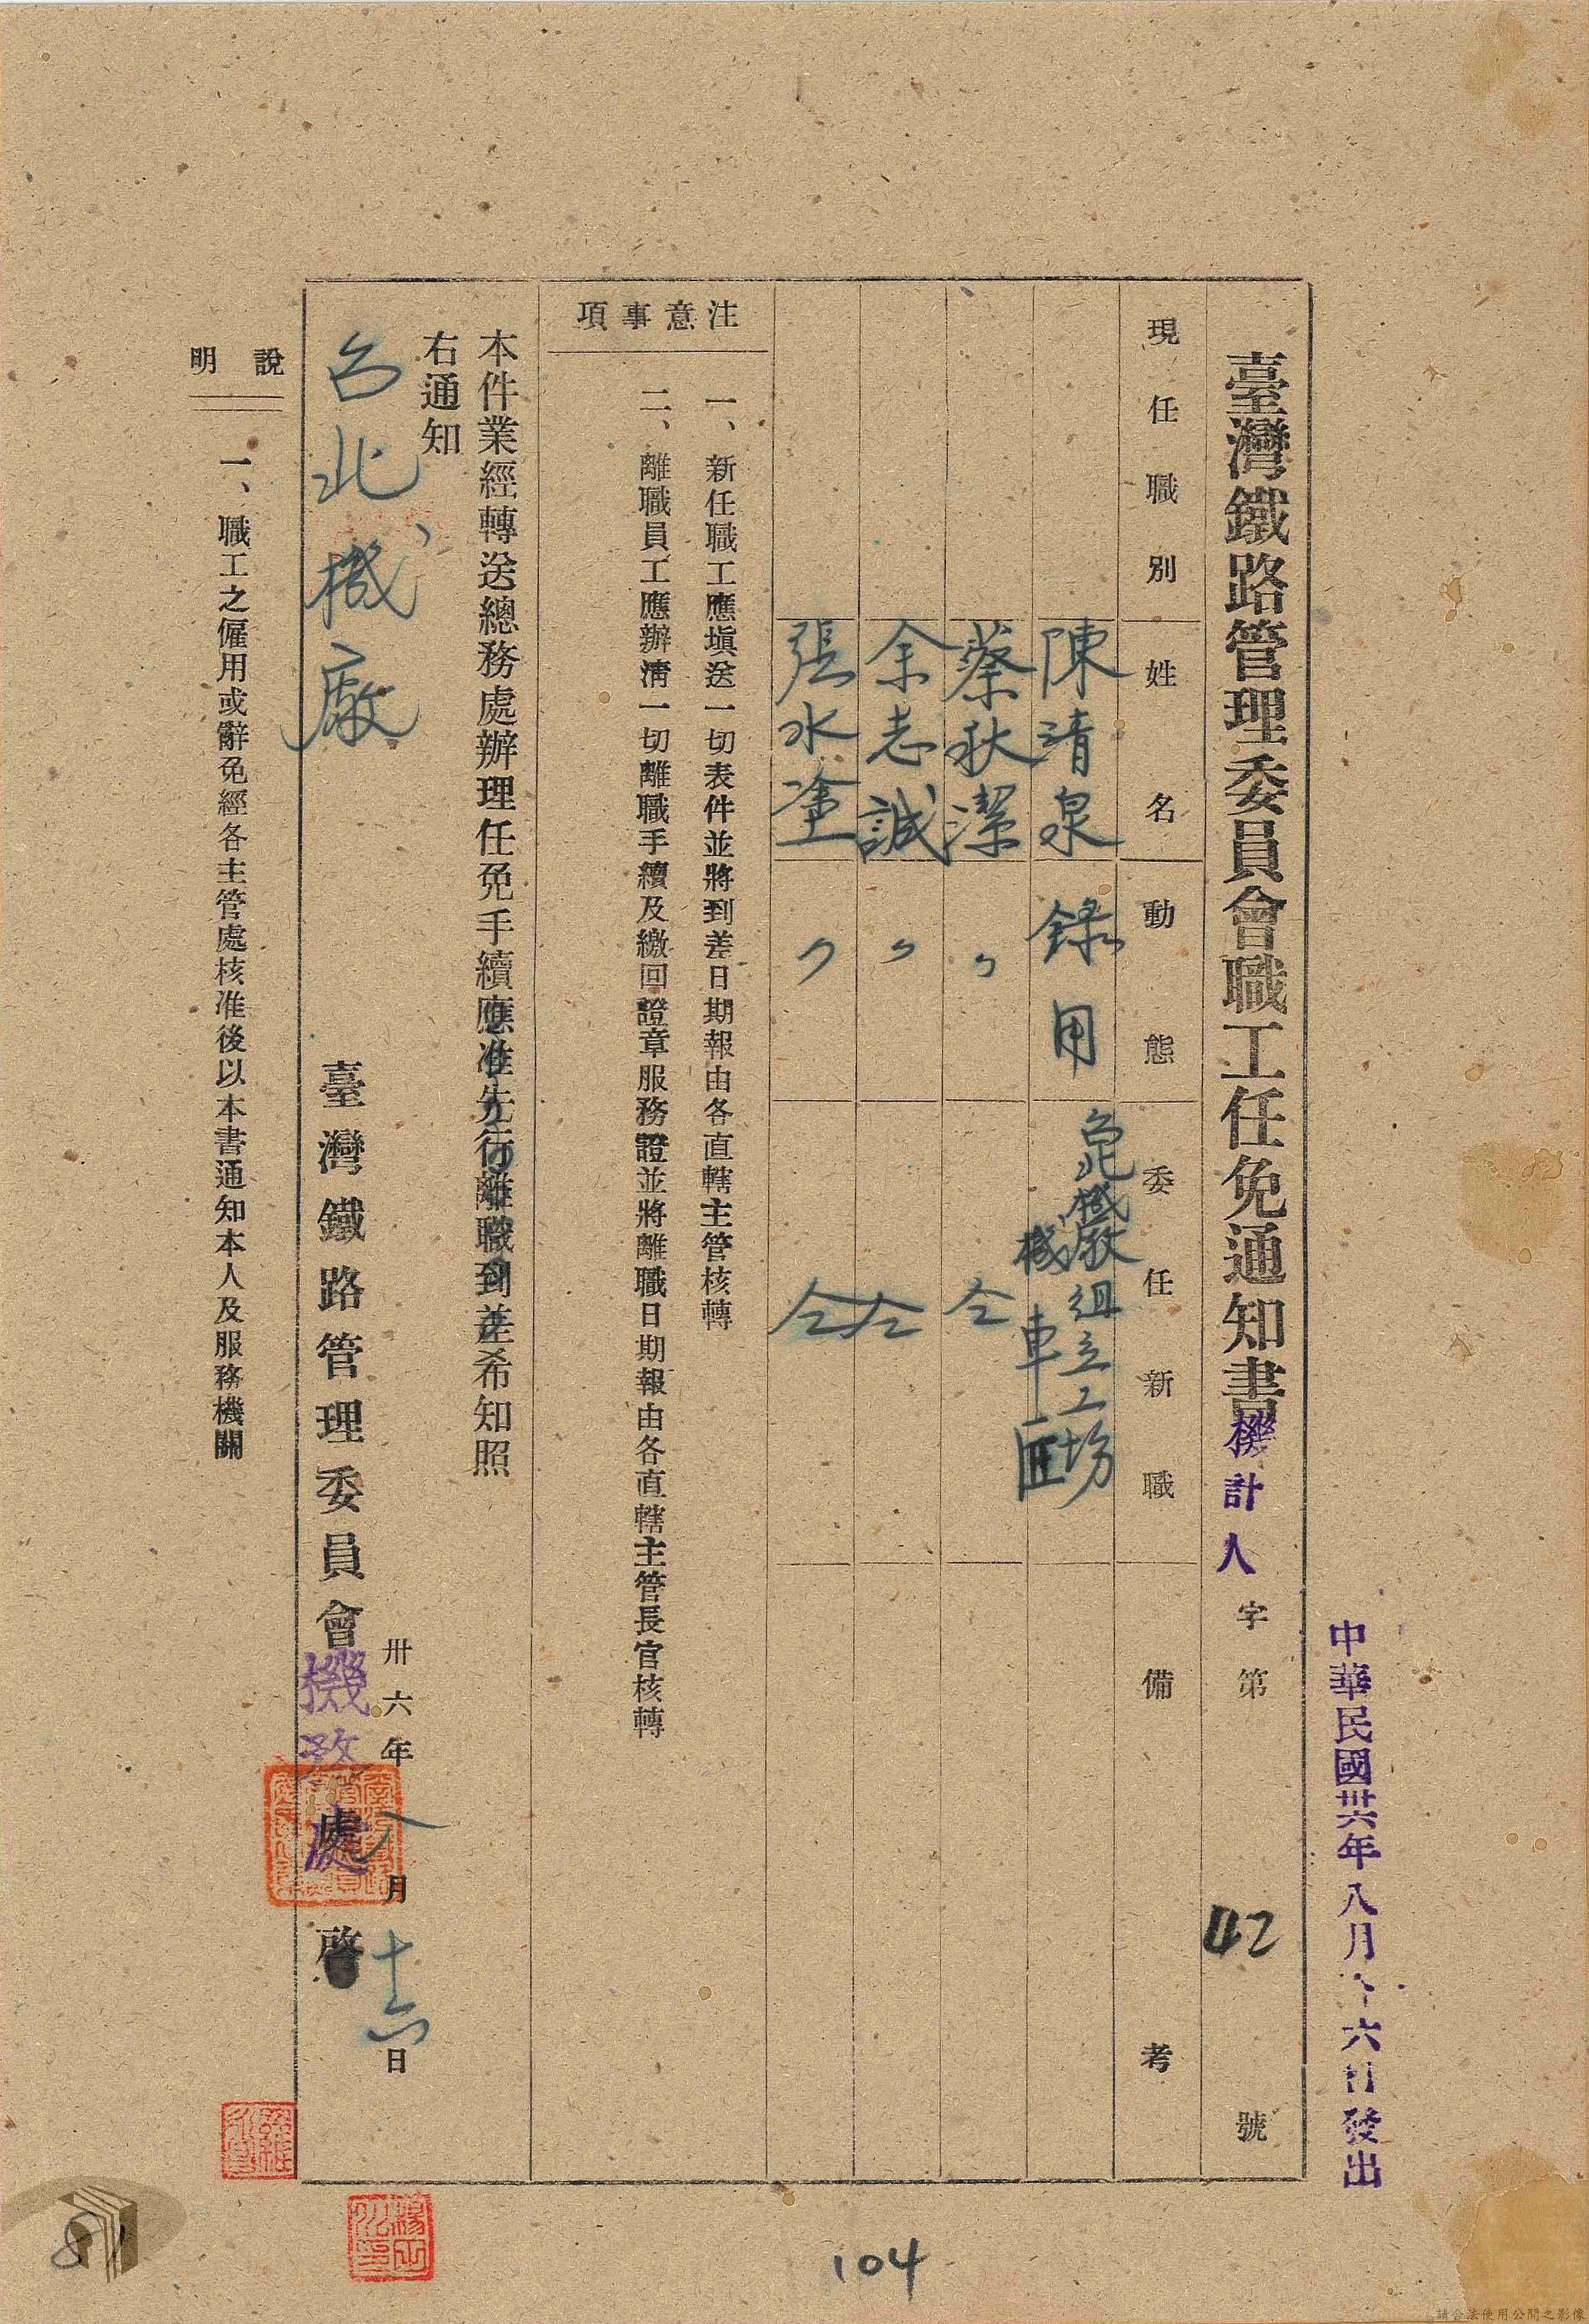 中華民國卅六年八月十六日發出
臺灣鐵路管理委員會職工任免通知書 機計人字第42號
現任職別 姓名 動態 委任新職 備考
陳清泉 錄用 台北機廠組立工場
機車匠
蔡秋潔 〃 仝
余志誠 〃 仝
張水塗 〃 仝
注意事項
一、新任職工應塡送一切表件並將到差日期報由各直轄主管核轉
二、離職員工應辦清一切離職手續及繳回證章服務證並將離職日期報由各直轄主管長官核轉
本件業經轉送總務處辦理任免手續應准先行離職到差希知照
右通知
台北機廠
卅六年八月十六日
臺灣鐵路管理委員會機務處啓
說明
一、職工之僱用或辭免經各主管處核准後以本書通知本人及服務機關
104
請合法使用公開之影像